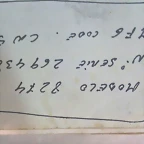 MODELO 8274
Nº SERIE 26943
MFG CODE. CN